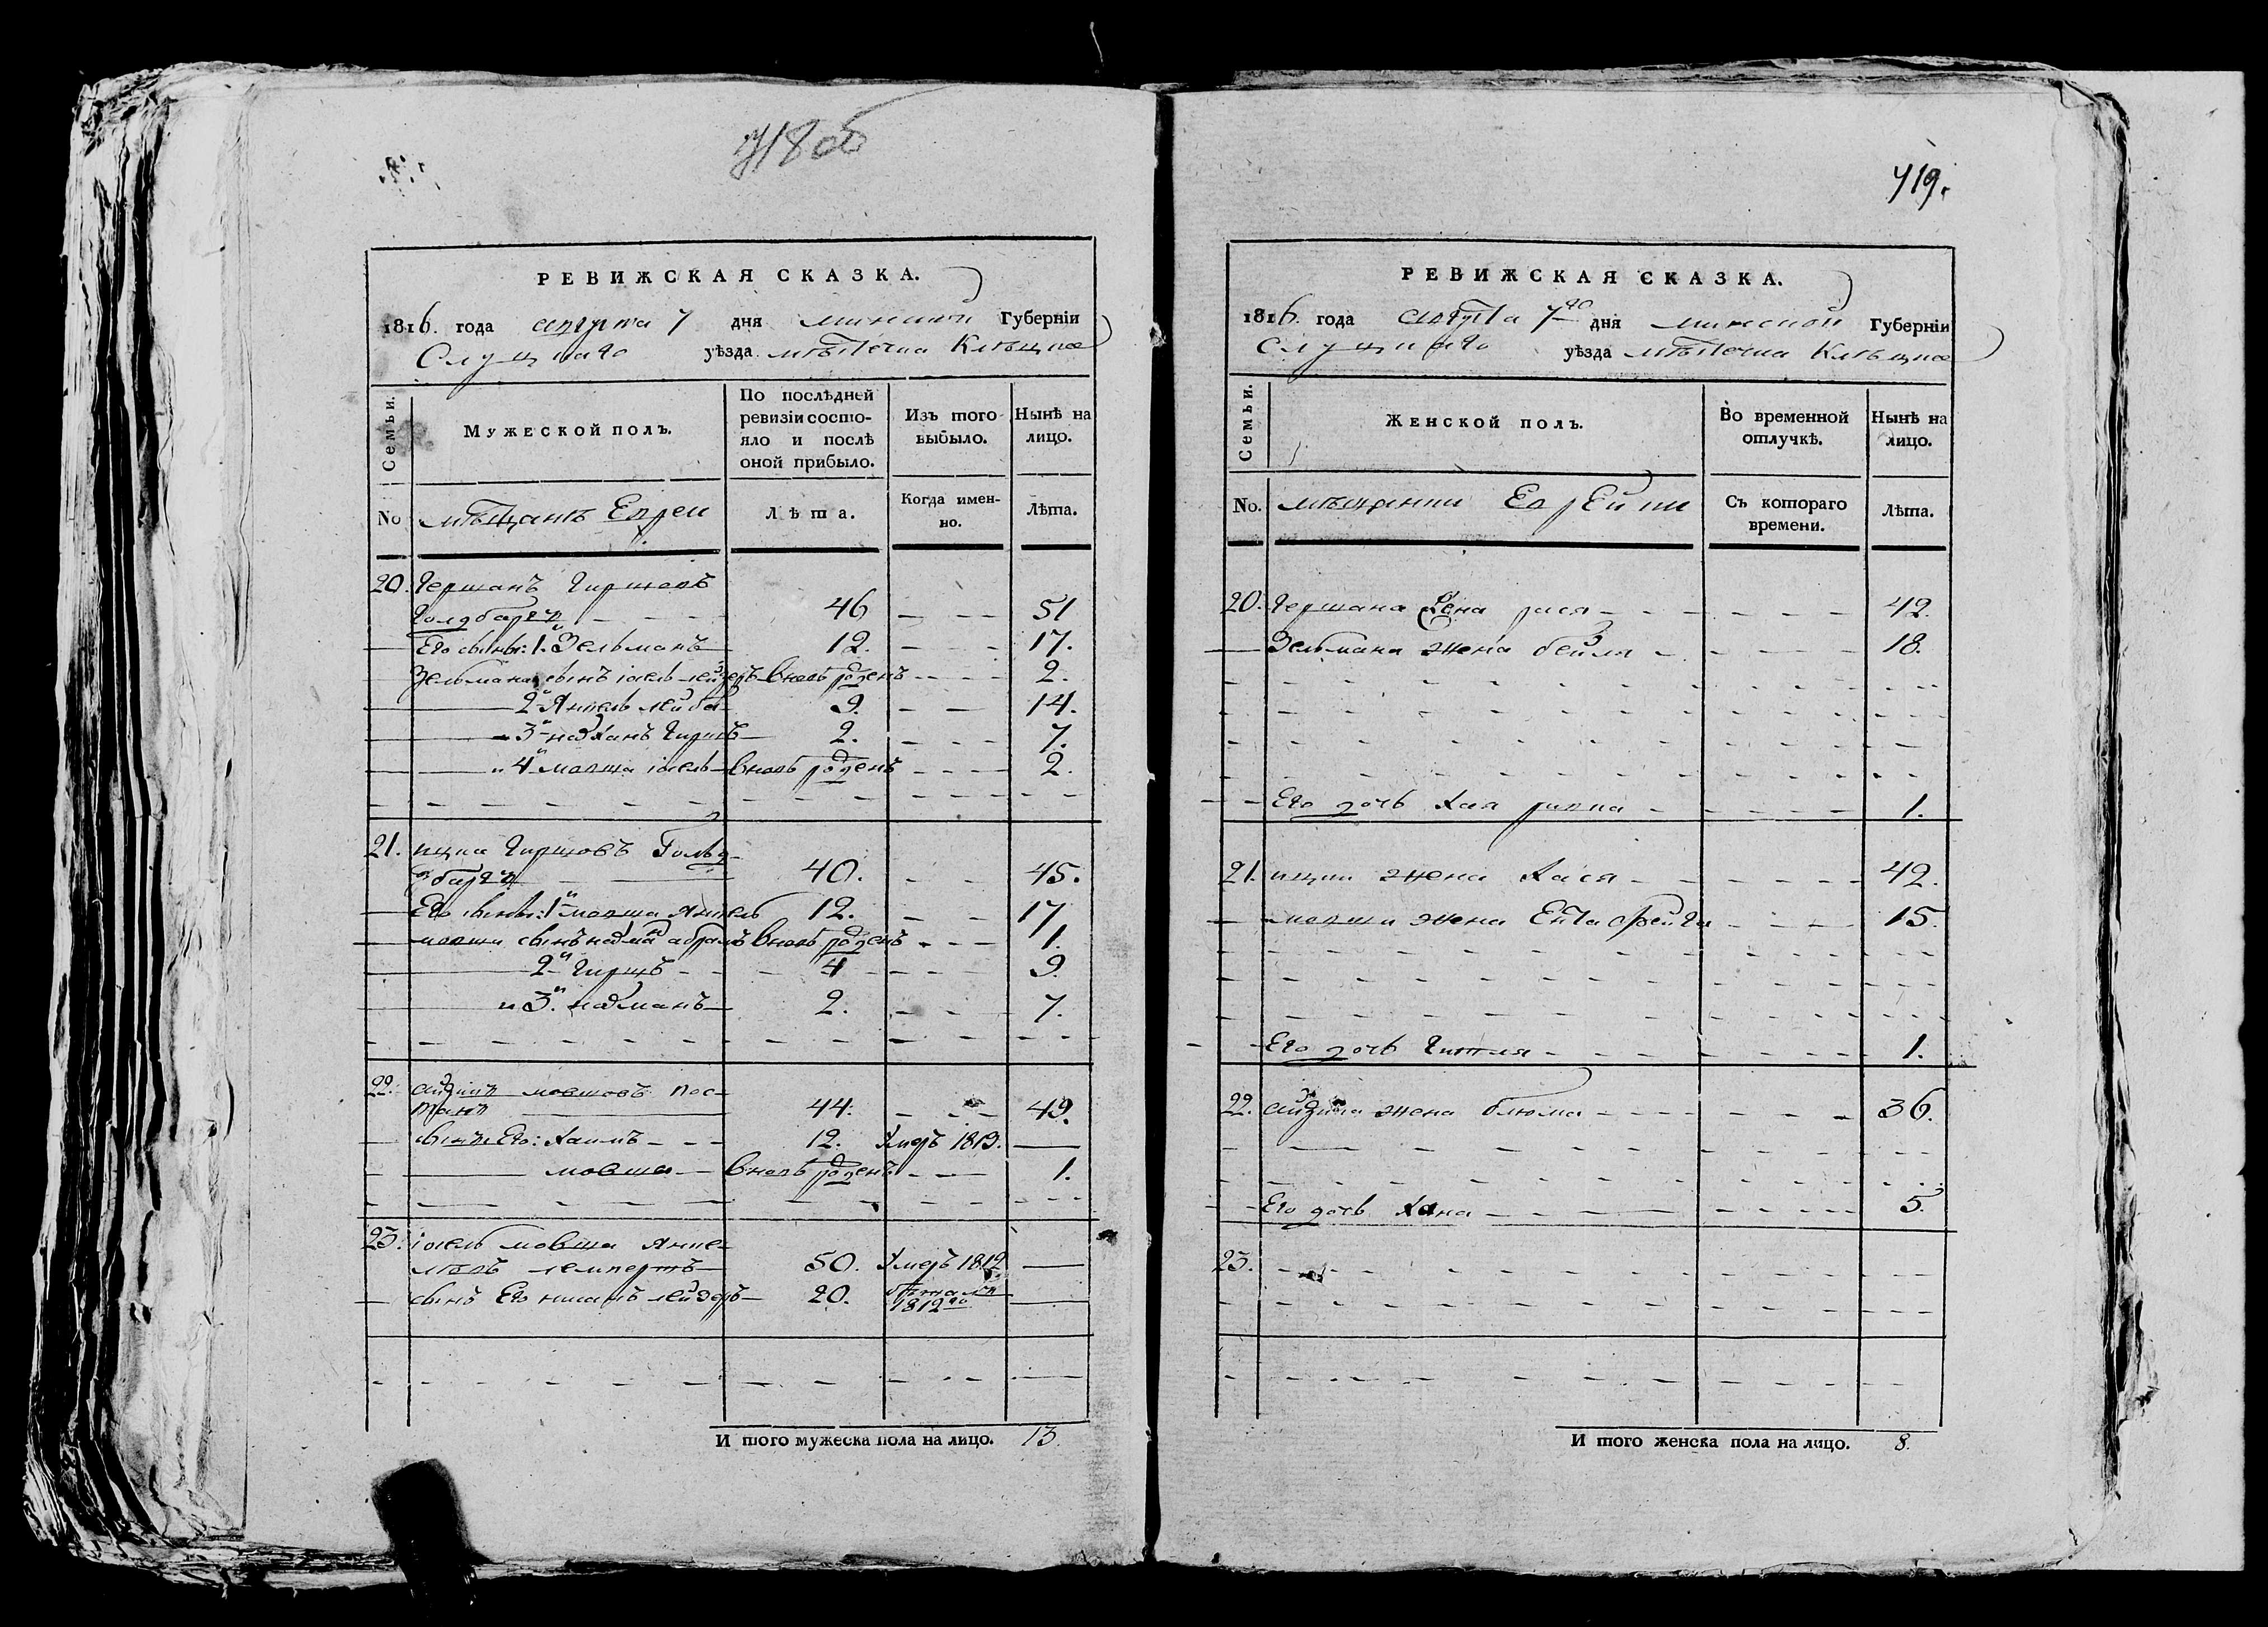 718 об
РЕВИЖСКАЯ СКАЗКА.
1816. года августа 7 дня минской Губерніи
Слуцкаго уѣзда мѣстечка Клѣцка
Семьи.
Мужеской полъ.
По послѣдней
ревизіи состо-
яло и послѣ
оной прибыло.
Изъ того
выбыло.
Нынѣ на
лицо.
No
мѣщанъ Евреи
Лѣта.
Когда имен-
но.
Лѣта.
20. Гершанъ Гиршовъ
Голдбаргъ 46 51
Его сыны: 1. Зельманъ 12. 17.
Зельмана сынъ іосель лейзеръ вновь рожденъ 2.
2й Янкель лейба 9. 14.
3й Гиршъ 2. 7.
и 4й мовша іосель вновь рожденъ 2.
21. ицка Гиршовъ Гольд-
баргъ 40. 45.
Его сыны: 1й мовша Янкель 12. 17
мовши сынъ абрамъ вновь рожденъ 1.
2й Гиршъ 4 9.
и 3й нахманъ 2. 7.
22. айзикъ мовшовъ
44. 49.
сынъ Его: Хаимъ 12. Умеръ 1813.
мовша вновь рожденъ 1.
23. іосель мовша Янке-
левъ лемпертъ 50. Умеръ 1812
сынъ Его лейзеръ 20. 1812го
И того мужеска пола на лицо. 13.
719.
РЕВИЖСКАЯ СКАЗКА.
1816. года августа 7го дня минской Губерніи
Слуцкаго уѣзда мѣстечка Клѣцка
Семьи.
Женской полъ.
Во временной
отлучкѣ.
Нынѣ на
лицо.
No.
мѣщанки Еврейки
Съ котораго
времени.
Лѣта.
20. Гершана жена рася 42.
Зельмана жена бейля 18.
Его дочь Хая ривка 1.
21. ицки жена Хася 42.
мовши жена Ента фейга 15.
Его дочь Гитля 1.
22. айзика жена блюма 36.
Его дочь Хана 5.
23.
И того женска пола на лицо. 8.